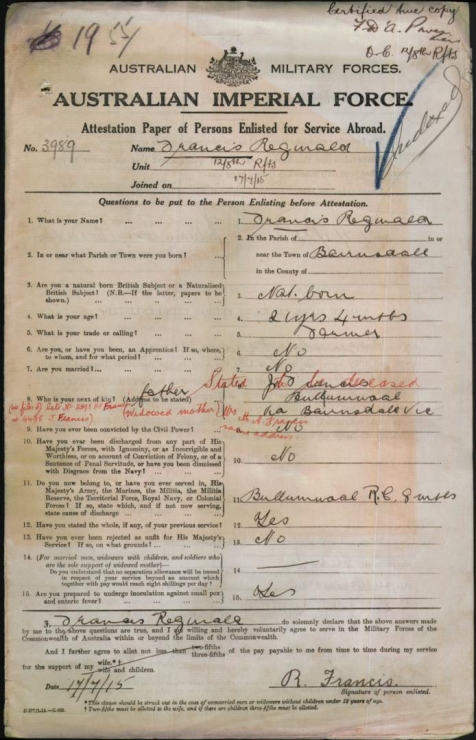 Certified true copy
1955
D.C. 12/8th R/ts
AUSTRALIAN MILITARY FORCES.
AUSTRALIAN IMPERIAL FORCE.
Indexed
Attestation Paper of Persons Enlisted for Service Abroad.
No. 3989 Name Francis Reginald
Unit 12/8th R/ts
Joined on 17/7/15
Questions to be put to the Person Enlisting before Attestation.
1. What is your Name? ... ... ... ... 1. Francis Reginald
2. In or near what Parish or Town were you born? ... 2. In the Parish of in or
near the Town of Bairnsdale
in the County of
3. Are you a natural born British Subject or a Naturalised
British Subject? (N.B.—If the latter, papers to be
shown.) ... ... ... ... 3. Nat. born
4. What is your age? ... ... ... ... 4. 21 yrs 4 mths
5. What is your trade or calling? ... ... ... 5. Farmer
6. Are you, or have you been, an Apprentice? If so, where,
to whom, and for what period? ... ... 6. No
7. Are you married? ... ... ... ... 7. No
father Stated deceased
8. Who is your next of kin? (Address to be stated) 8. Bullumwaal
Widowed mother Mrs H. A. Francis via Bairnsdale Vic
same address
9. Have you ever been convicted by the Civil Power? ... 9. No
10. Have you ever been discharged from any part of His
Majesty's Forces, with Ignominy, or as Incorrigible
and Worthless, or on account of Conviction of Felony, or of a
Sentence of Penal Servitude, or have you been dismissed
with Disgrace from the Navy? ... ... 10. No
11. Do you now belong to, or have you ever served in, His
Majesty's Army, the Marines, the Militia, the Militia
Reserve, the Territorial Force, Royal Navy, or Colonial
Forces? If so, state which, and if not now serving,
state cause of discharge ... ... 11. Bullumwaal R.C. 8 mths
12. Have you stated the whole, if any, of your previous service? 12. Yes
13. Have you ever been rejected as unfit for His Majesty's
Service? If so, on what grounds? ... ... 13. No
14. (For married men, widowers with children, and soldiers who
are the sole support of widowed mother)—
Do you understand that no separation allowance will be issued
in respect of your service beyond an amount which
together with pay would reach eight shillings per day? 14. —
15. Are you prepared to undergo inoculation against small pox
and enteric fever? ... ... ... 15. Yes
I, Francis Reginald do solemnly declare that the above answers made
by me to the above questions are true, and I am willing and hereby voluntarily agree to serve in the Military Forces of the
Commonwealth of Australia within or beyond the limits of the Commonwealth.
And I further agree to allot not less than two-fifths
three-fifths of the pay payable to me from time to time during my service
for the support of my wife.*†
wife and children.
Date 17/7/15 R. Francis.
Signature of person enlisted.
*This clause should be struck out in the case of unmarried men or widowers without children under 18 years of age.
†Two-fifths must be allotted to the wife, and if there are children three-fifths must be allotted.